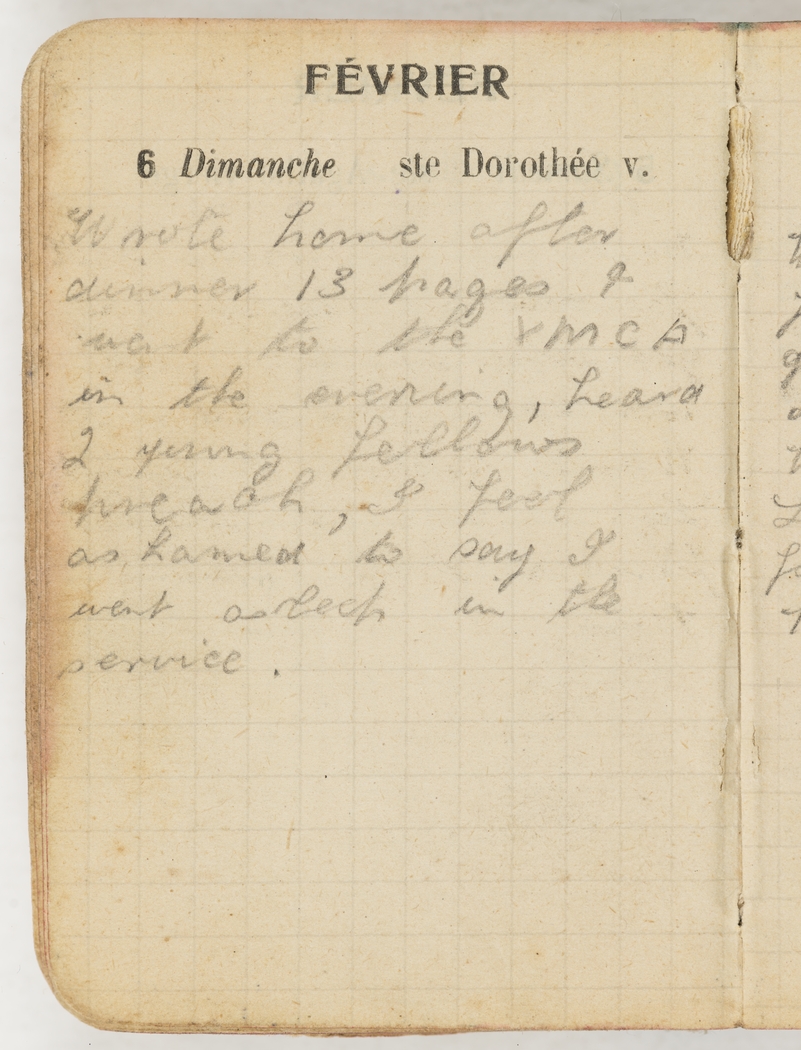 FÉVRIER
6 Dimanche ste Dorothée v.
Wrote home after
dinner 13 pages I
went to the YMCA
in the evening, heard
2 young fellows
preach, I feel
ashamed to say I
went asleep in the
service.